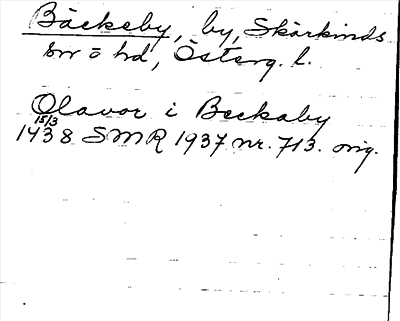 Bäckeby, by, Skärkinds
sn o hd, Österg. l.
Olavor i Beckaby
15/3
1438 SMR 1937 nr. 713. orig.